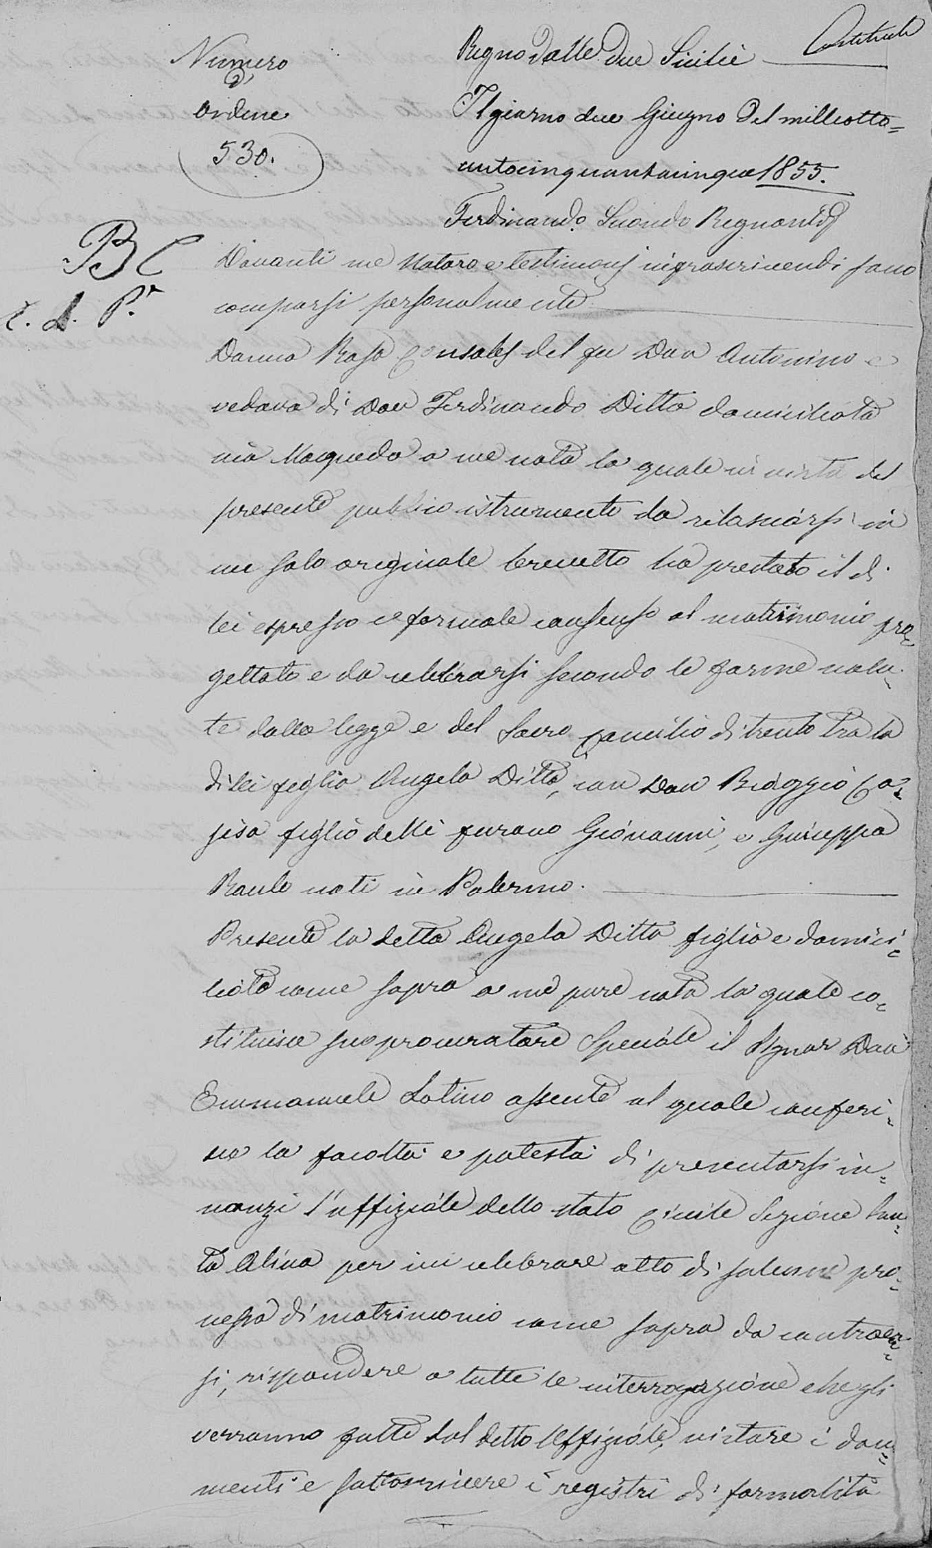 Numero
d'
ordine
530.
Regno delle due Sicilie
Il giorno due Giugno del milleotto=
centocinquantacinque 1855.
Ferdinando Secondo Regnante
Davanti me Notaro e testimonj infrascrivendi sono
comparsi personalmente
Donna Rosa Consales del fu Don Antonino e
vedova di Don Ferdinando Ditta domiciliata
via Maqueda a me nota la quale in virtù del
presente publico istrumento da rilasciarsi in
un solo originale brevetto ha prestato il di
lei espresso e formale consenso al matrimonio pro=
gettato e da celebrarsi secondo le forme volu=
te dalla legge e del Sacro Concilio di trento tra la
di lei figlia Angela Ditta, con Don Biaggio
figlio delli furono Giovanni, e Giuseppa
Raule nati in Palermo.
Presente la detta Angela Ditta figlia e domici=
liata come sopra a me pure nota la quale co=
stituisce suo procuratore Speciale il Signor Don
Emmanuele Latino assente al quale conferi=
sce la facoltà e potestà di presentarsi in=
nanzi l'uffiziale dello stato Civile Sezione San=
ta Oliva per ivi celebrare atto di solenne pro=
messa di matrimonio come sopra da contraer=
si, rispondere a tutte le interrogazione che gli
verranno fatte dal detto Uffiziale, vistare i docu=
menti e sottoscrivere i registri di formalità